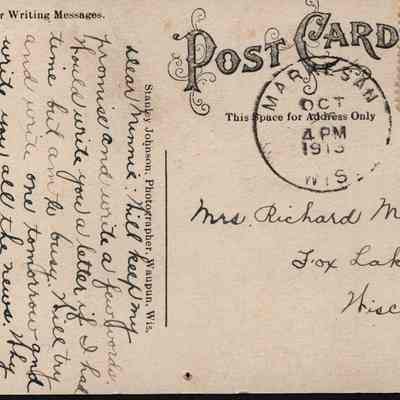 r Writing Messages.
POST CARD
This Space for Address Only
MARKESAN
OCT
4 PM
1913
WIS
Dear Minnie: Will keep my
promise and write a few words.
Would write you a letter if I had
time but am so busy. Will try
and write one tomorrow and
write you all the news. Why
Stanley Johnson, Photographer, Waupun, Wis.
Mrs. Richard M
Fox Lak
Wisc